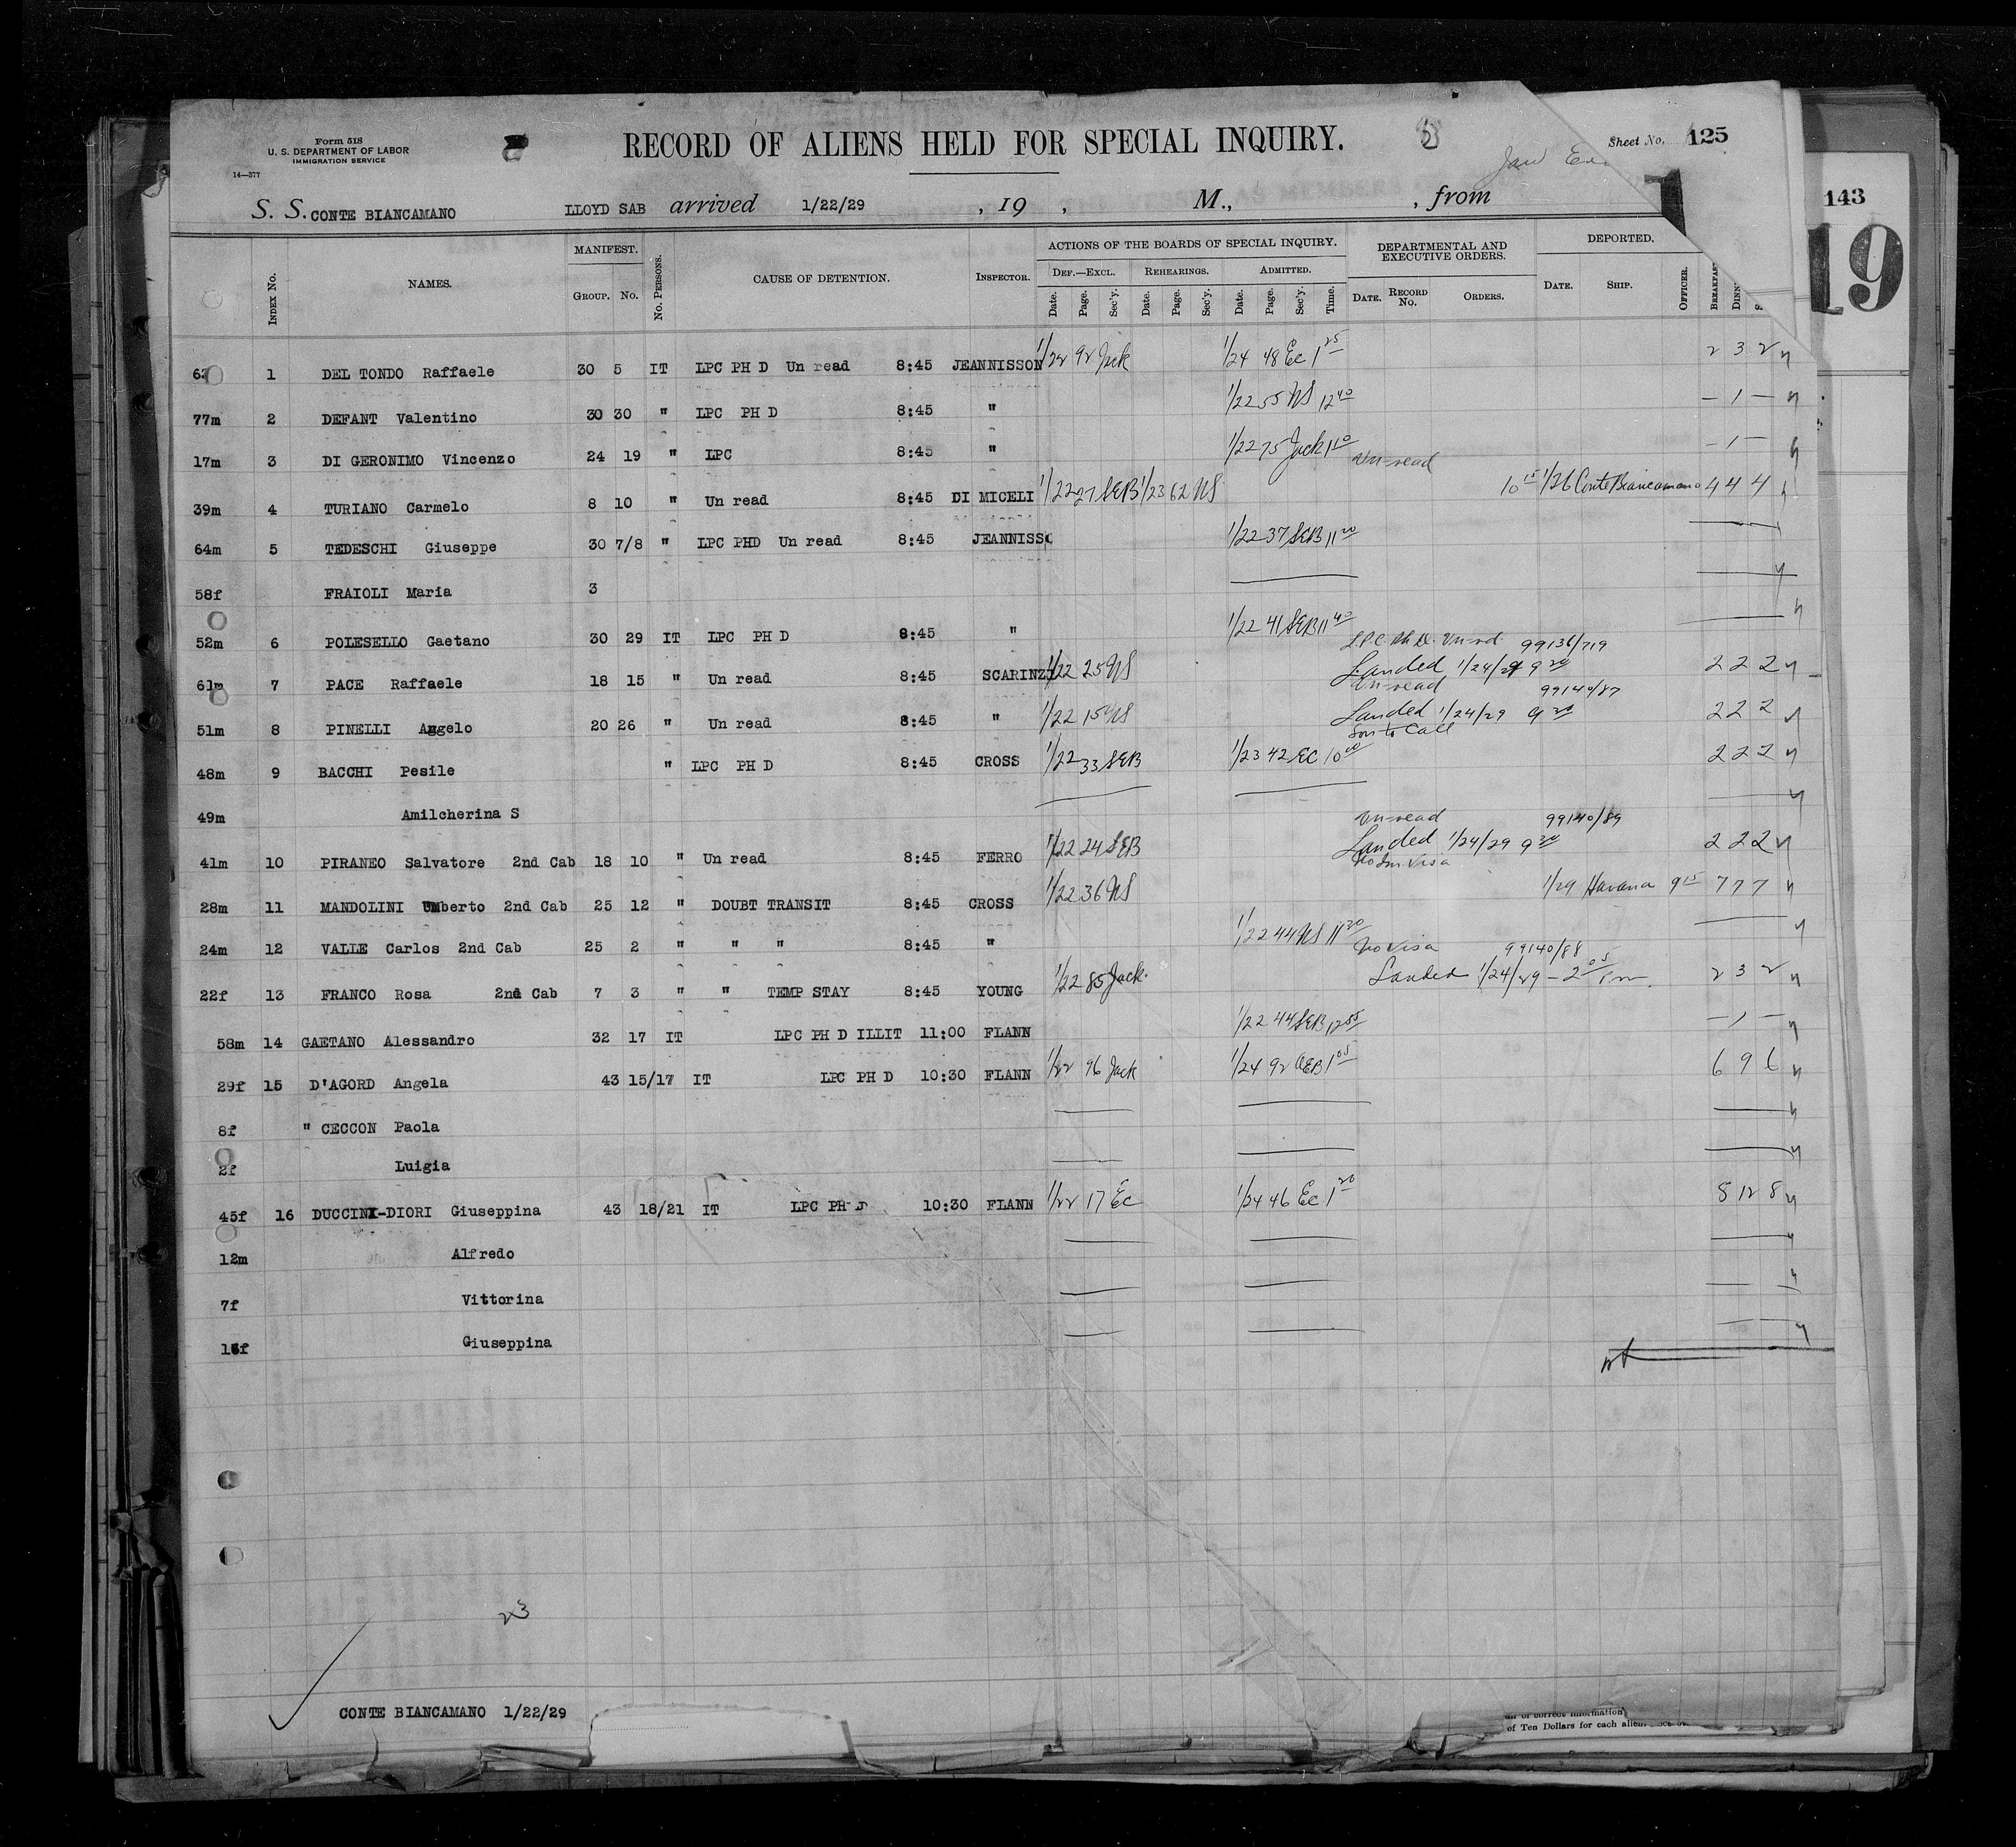 Form 518
U. S. DEPARTMENT OF LABOR
IMMIGRATION SERVICE
14—377
RECORD OF ALIENS HELD FOR SPECIAL INQUIRY.
Sheet No. 125
143
19
S. S. CONTE BIANCAMANO LLOYD SAB arrived 1/22/29 , 19 , M., , from
INDEX No. NAMES. MANIFEST. GROUP. No. No. PERSONS. CAUSE OF DETENTION. INSPECTOR. ACTIONS OF THE BOARDS OF SPECIAL INQUIRY. DEPARTMENTAL AND EXECUTIVE ORDERS. DEPORTED.
DEF.—EXCL. REHEARINGS. ADMITTED.
Date. Page. Sec'y. Date. Page. Sec'y. Date. Page. Sec'y. Time. DATE. RECORD No. ORDERS. DATE. SHIP. OFFICER. BREAKFAST
1 DEL TONDO Raffaele 30 5 IT LPC PH D Un read 8:45 JEANNISSON 1/22 92 Jack 1/24 48 Ec 1 25 2 3 2
77m 2 DEFANT Valentino 30 30 " LPC PH D 8:45 " 1/22 55 NS 12 40 — 1 —
17m 3 DI GERONIMO Vincenzo 24 19 " LPC 8:45 " 1/22 75 Jack 1 10 — 1 —
Un-read
39m 4 TURIANO Carmelo 8 10 " Un read 8:45 DI MICELI 1/22 27 SEB 1/23 62 NS 10 15 1/26 Conte Biancamano 4 4 4
64m 5 TEDESCHI Giuseppe 30 7/8 " LPC PHD Un read 8:45 JEANNISSO 1/22 37 SEB 11 20
58f FRAIOLI Maria 3
52m 6 POLESELLO Gaetano 30 29 IT LPC PH D 8:45 " 1/22 41 SEB 11 40
L.P.C. Ph.D. Un-rd. 99136/719
61m 7 PACE Raffaele 18 15 " Un read 8:45 SCARINZI 1/22 25 NS Landed 1/24/29 9 20 2 2 2
Un-read 99140/87
51m 8 PINELLI Angelo 20 26 " Un read 8:45 " 1/22 15 NS Landed 1/24/29 9 20 2 2 2
Son to Call
48m 9 BACCHI Pesile " LPC PH D 8:45 CROSS 1/22 33 SEB 1/23 42 EC 10 00 2 2 2
49m Amilcherina S
Un-read 99140/89
41m 10 PIRANEO Salvatore 2nd Cab 18 10 " Un read 8:45 FERRO 1/22 24 SEB Landed 1/24/29 9 20 2 2 2
No Im. Visa
28m 11 MANDOLINI Umberto 2nd Cab 25 12 " DOUBT TRANSIT 8:45 CROSS 1/22 36 NS 1/29 Havana 9 15 7 7 7
24m 12 VALLE Carlos 2nd Cab 25 2 " " " 8:45 " 1/22 44 NS 11 30
No Visa 99140/88
22f 13 FRANCO Rosa 2nd Cab 7 3 " " TEMP STAY 8:45 YOUNG 1/22 85 Jack. Landed 1/24/29 — 2 05 Pm. 2 3 2
58m 14 GAETANO Alessandro 32 17 IT LPC PH D ILLIT 11:00 FLANN 1/22 44 SEB 12 55 — 1 —
29f 15 D'AGORD Angela 43 15/17 IT LPC PH D 10:30 FLANN 1/22 96 Jack 1/24 92 1 05 6 9 6
8f " CECCON Paola
2f Luigia
45f 16 DUCCINI-DIORI Giuseppina 43 18/21 IT LPC PH D 10:30 FLANN 1/22 17 Ec 1/24 46 Ec 1 20 8 12 8
12m Alfredo
7f Vittorina
Giuseppina
23
CONTE BIANCAMANO 1/22/29
of correct information
of Ten Dollars for each alien